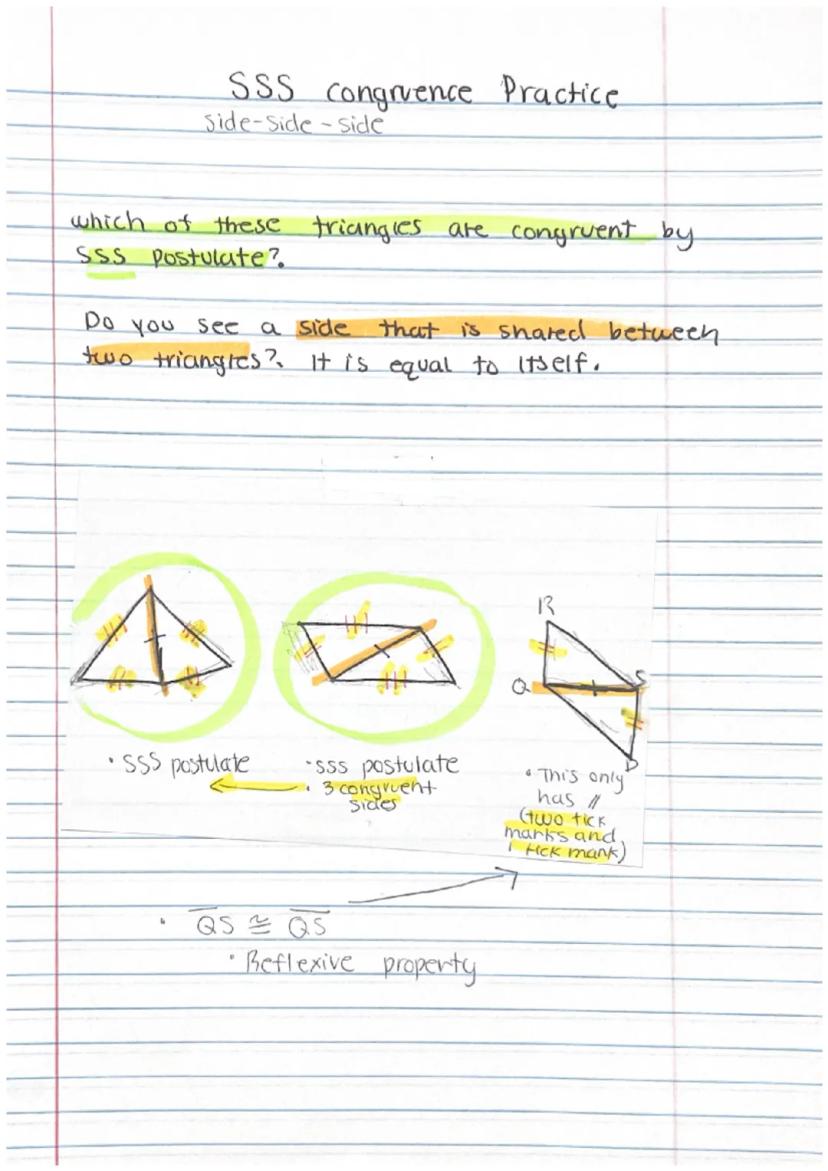 SSS Congruence Practice
side-side-side
which of these triangles are congruent by
SSS postulate?.
Do you see a side that is shared between
two triangles?. It is equal to itself.
R
Q
S
D
• SSS postulate
• SSS postulate
• 3 congruent
sides
• This only
has //
(two tick
marks and
1 tick mark)
• QS ≅ QS
• Reflexive property